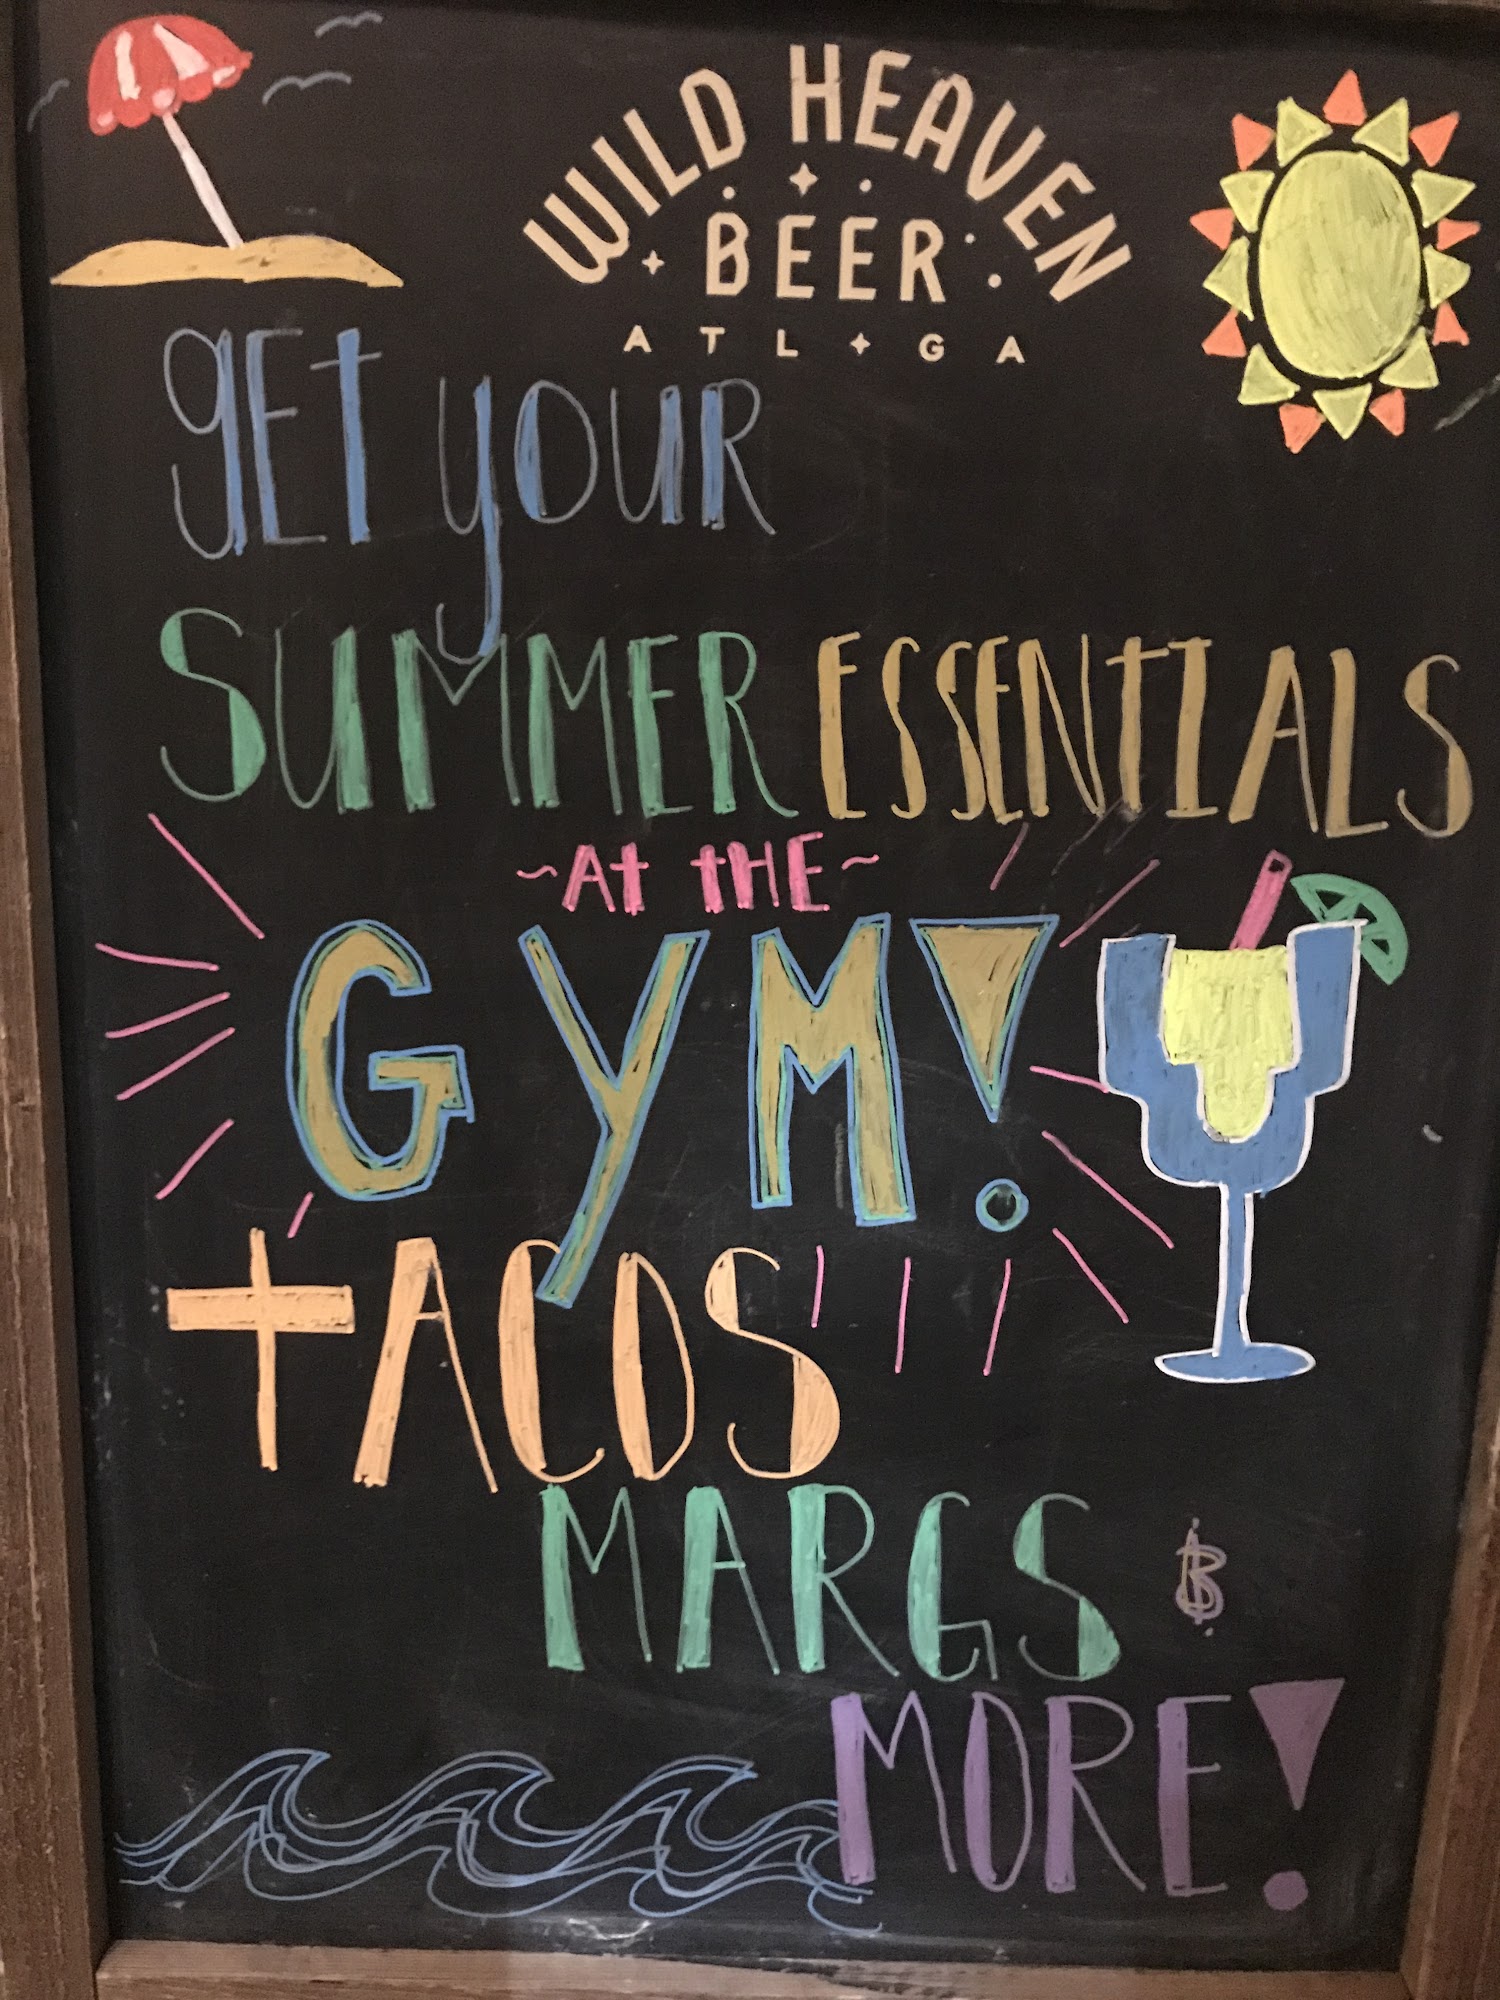 WILD HEAVEN
BEER
ATL GA
gET yOUR
SUMMER ESSENTIALS
~At tHE~
GYM!
tACOS
MARGS &
MORE!